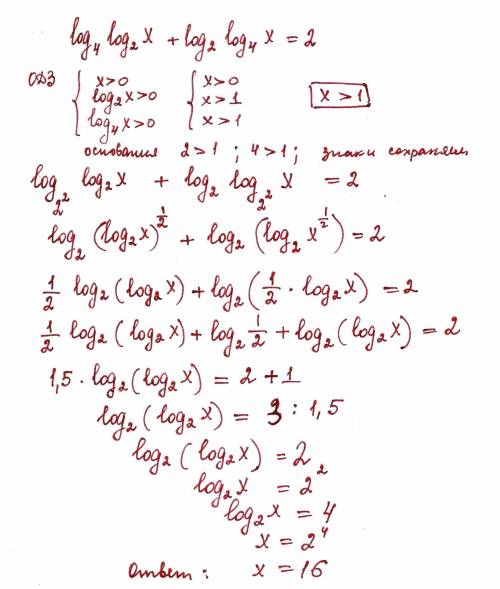 log₄ log₂ x + log₂ log₄ x = 2
ОДЗ { x>0 { x>0
log₂x>0 x>1 x>1
log₄x>0 x>1
основания 2>1 ; 4>1 ; знаки сохраняем
log₂² log₂x + log₂ log₂² x = 2
log₂ (log₂x)^½ + log₂ (log₂ x^½) = 2
½ log₂ (log₂x) + log₂ (½ · log₂x) = 2
½ log₂ (log₂x) + log₂ ½ + log₂ (log₂x) = 2
1,5 · log₂ (log₂x) = 2 + 1
log₂ (log₂x) = 3 : 1,5
log₂ (log₂x) = 2
log₂x = 2²
log₂x = 4
x = 2⁴
Ответ : x = 16